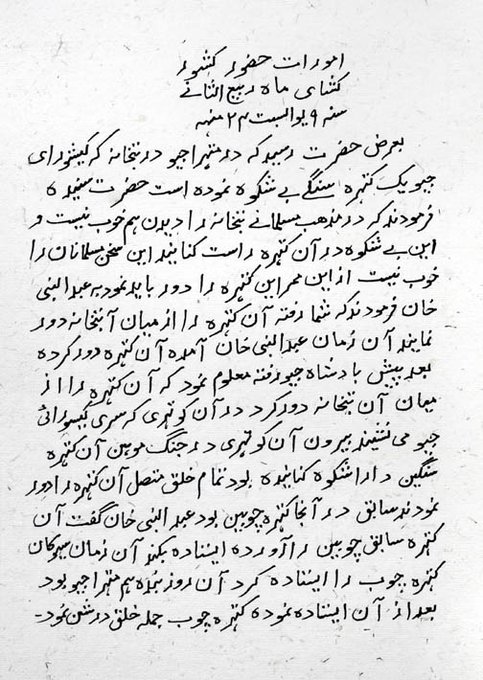 امورات حضور کشور
کشای ماه ربیع الثانے
سنه ۹ یوالست ۲۴ منهہ
بعرض حضرت رسید که در متہراجیو در بتخانہ که کیشورای
جیو یک کتہره سنگی بے شکوه نموده است حضرت شنیده
فرمودند که در مذهب مسلمانے بتخانه را دیدن هم خوب نیست و
این بے شکوه در آن کتہره راست کنانیده این سخن مسلمانان را
خوب نیست از این ممر این کتہره را دور باید نمود بہ عبدالنبی
خان فرمودند که شما رفته آن کتہره را از میان آن بتخانہ دور
نمایند آن زمان عبدالنبی خان آمده آن کتہره دور کرده
بعد پیش بادشاه جیو رفته معلوم نمود که آن کتہره را از
میان آن بتخانہ دور کرد در آن کوتہری که سری کیسورائی
جیو می نشینند بیرون آن کوتہری در جنگ موہن آن کتہره
سنگین دارا شکوه کنانیده بود تمام خلق متصل آن کتہره را دور
نمودند سابق در آنجا کتہره چوبین بود عبدالنبی خان گفت آن
کتہره سابق چوبین را آورده ایستاده بکند آن زمان سیوکان
کتہره چوب را ایستاده کرد آن روز بنده هم متہراجیو بود
بعد از آن ایستاده نموده کتہره چوب جمله خلق درشن نمود-